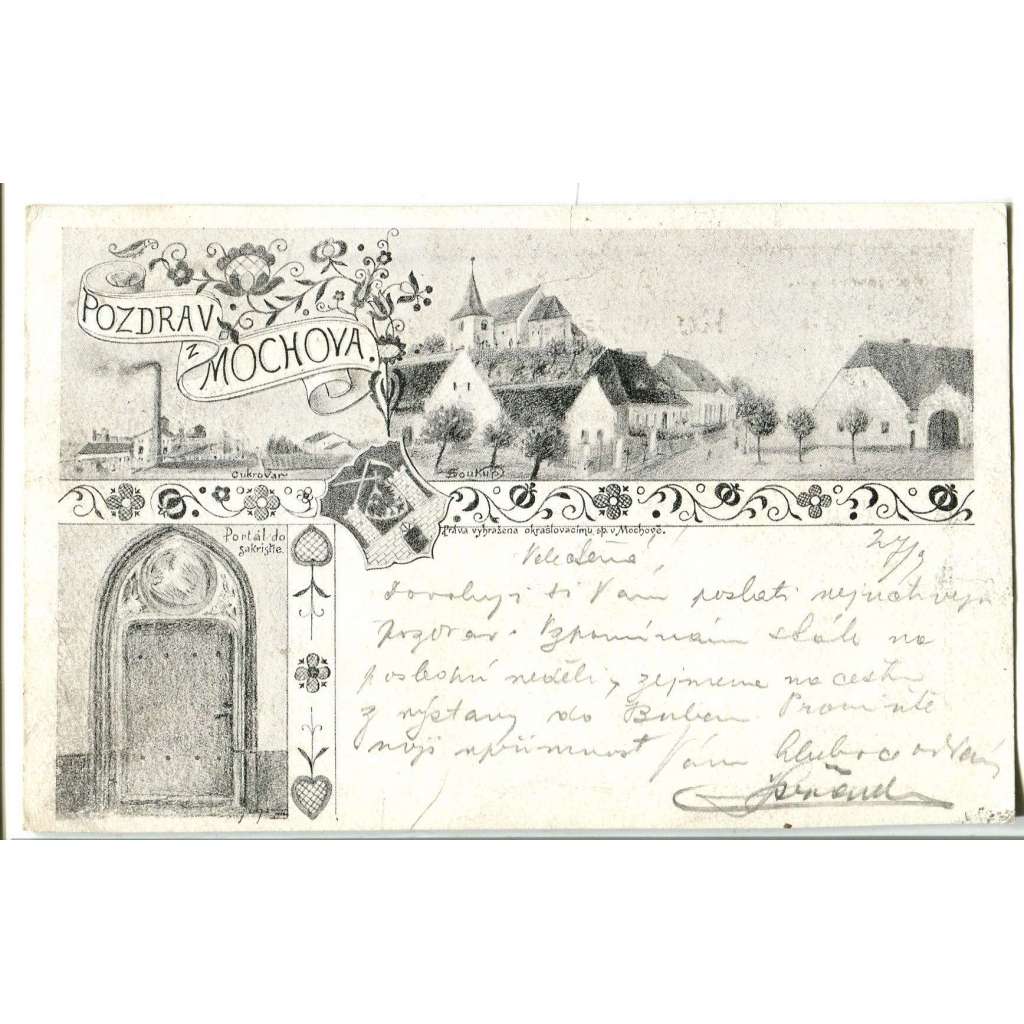 POZDRAV
Z
MOCHOVA.
Cukrovar
Soukup
Práva vyhražena okrašlovacímu sp. v Mochově.
Portál do
sakristie.
27/9
Velectěná
Dovoluji si Vám poslati nejuctivější
pozdrav. Vzpomínám stále na
poslední neděli, zejmena na cestu
z výstavy do Buben. Promiňte
moji upřímnost Vám hluboce oddaný